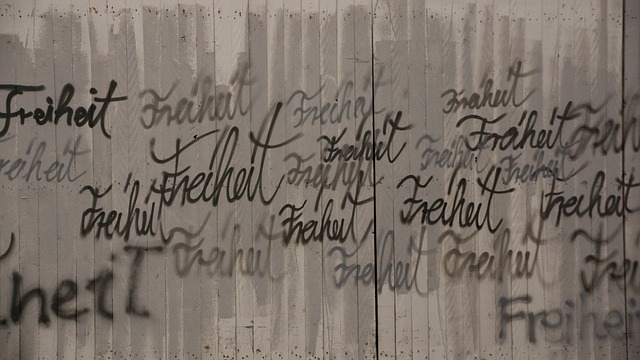 Freiheit
Freiheit
Freiheit
Freiheit
Freiheit
Freiheit
Freiheit
Freiheit
Freiheit
Freiheit
Freiheit
Freiheit
Freiheit
Freiheit
Freiheit
Freiheit
Freiheit
Freiheit
Freiheit